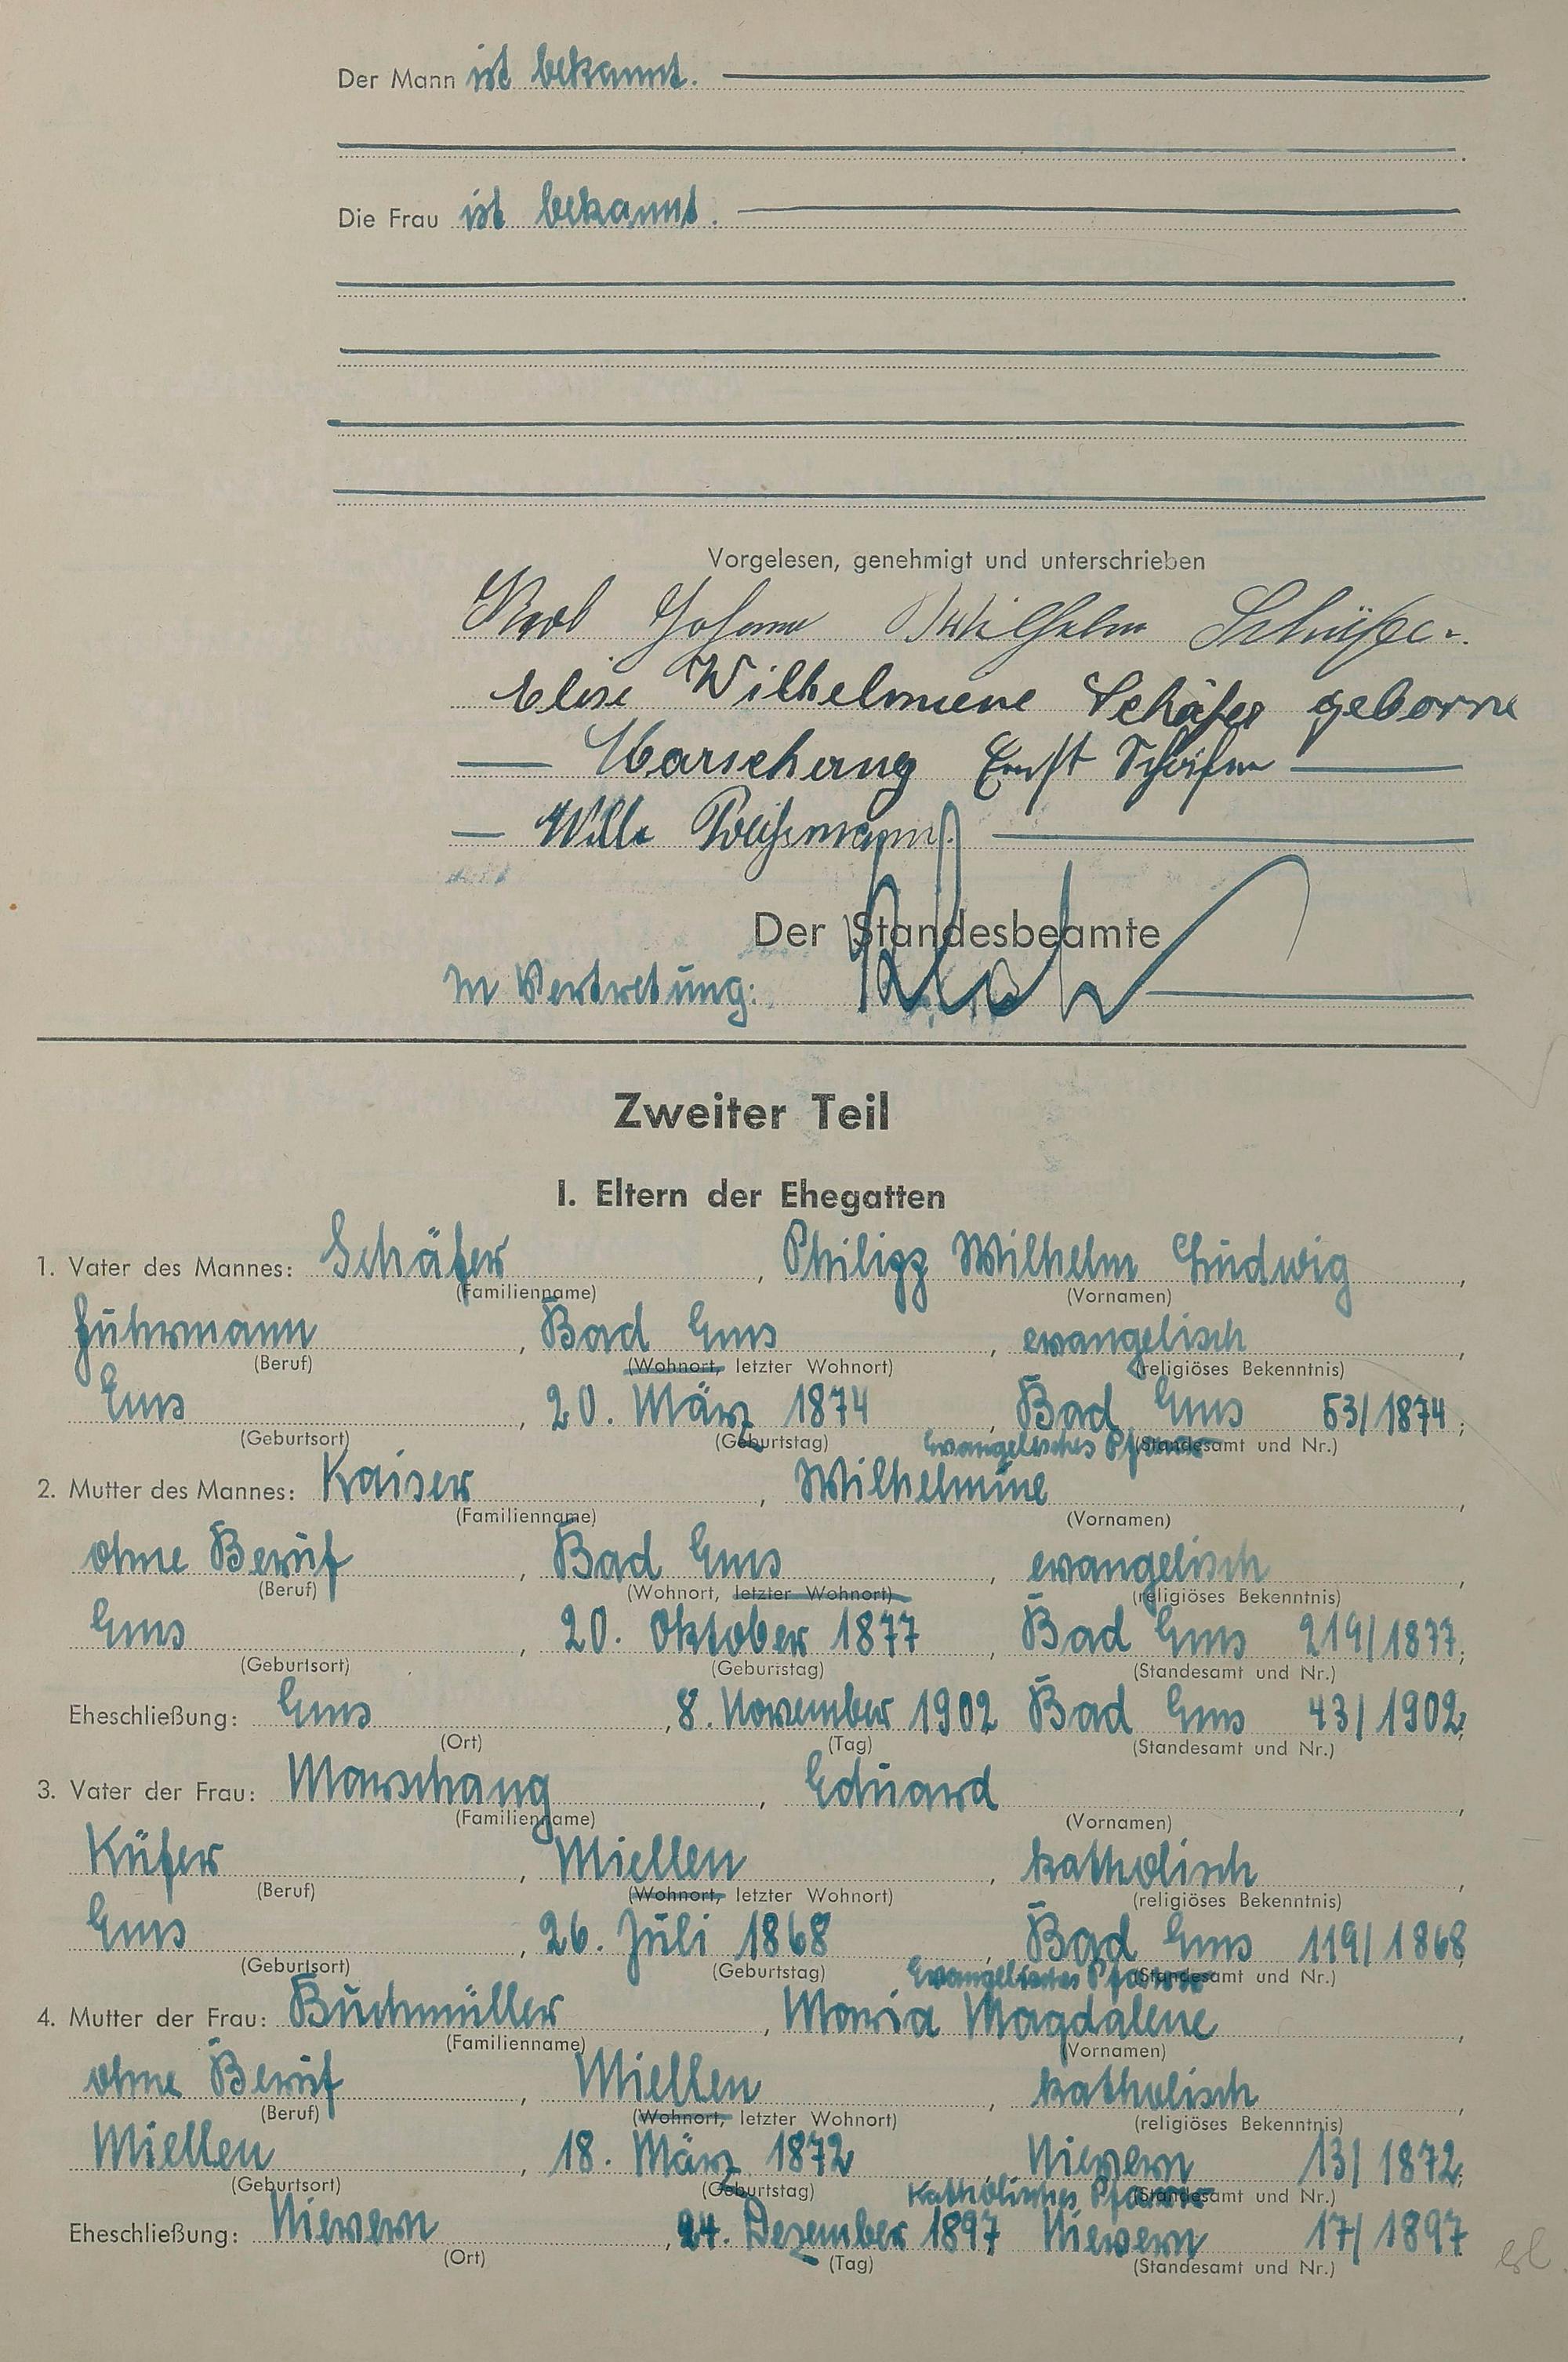 Der Mann ist bekannt.
Die Frau ist bekannt.
Vorgelesen, genehmigt und unterschrieben
Karl Johann Wilhelm Schäfer
Elise Wilhelmiene Schäfer geborne
Marschang Ernst Schäfer
Willi
Der Standesbeamte
In Vertretung:
Zweiter Teil
I. Eltern der Ehegatten
1. Vater des Mannes: Schäfer, Philipp Wilhelm Ludwig,
(Familienname) (Vornamen)
Fuhrmann, Bad Ems, evangelisch,
(Beruf) (Wohnort, letzter Wohnort) (religiöses Bekenntnis)
Ems, 20. März 1874, Bad Ems 53/1874;
(Geburtsort) (Geburtstag) Evangelisches Pfarr (Standesamt und Nr.)
2. Mutter des Mannes: Kaiser, Wilhelmine,
(Familienname) (Vornamen)
ohne Beruf, Bad Ems, evangelisch,
(Beruf) (Wohnort, letzter Wohnort) (religiöses Bekenntnis)
Ems, 20. Oktober 1877, Bad Ems 219/1877;
(Geburtsort) (Geburtstag) (Standesamt und Nr.)
Eheschließung: Ems, 8. November 1902 Bad Ems 43/1902;
(Ort) (Tag) (Standesamt und Nr.)
3. Vater der Frau: Marschang, Eduard,
(Familienname) (Vornamen)
Küfer, Miellen, katholisch,
(Beruf) (Wohnort, letzter Wohnort) (religiöses Bekenntnis)
Ems, 26. Juli 1868, Bad Ems 119/1868
(Geburtsort) (Geburtstag) Evangelisches Pfarr (Standesamt und Nr.)
4. Mutter der Frau: Buchmüller, Maria Magdalene,
(Familienname) (Vornamen)
ohne Beruf, Miellen, katholisch,
(Beruf) (Wohnort, letzter Wohnort) (religiöses Bekenntnis)
Miellen, 18. März 1872, Nievern 13/1872;
(Geburtsort) (Geburtstag) Katholisches Pfarr (Standesamt und Nr.)
Eheschließung: Nievern, 24. Dezember 1897 Nievern 17/1897
(Ort) (Tag) (Standesamt und Nr.)